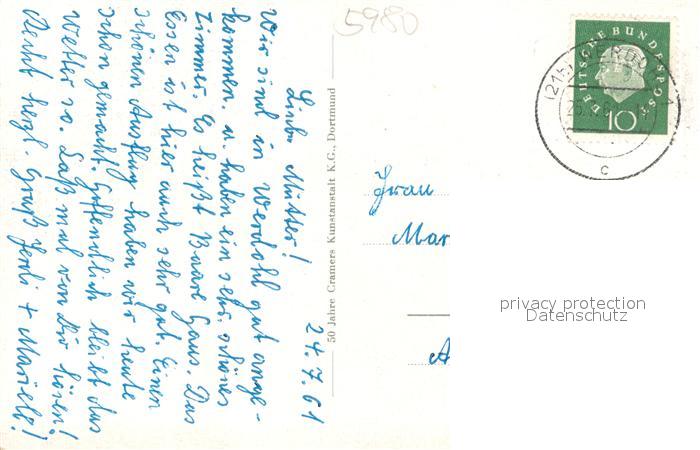 24.7.61
Liebe Mutter!
Wir sind in Werdohl gut ange-
kommen. u. haben ein sehr schönes
Zimmer. Es heißt Haus. Das
Essen ist hier auch sehr gut. Einen
schönen Ausflug haben wir heute
schon gemacht. Hoffendlich bleibt das
Wetter so. Laß mal von Dir hören!
Recht herzl. Gruß Ferdi +
50 Jahre Cramers Kunstanstalt K.G., Dortmund
5980
DEUTSCHE BUNDESPOST
10
(21b) WERDOHL
c
Frau
Mar
A
privacy protection
Datenschutz